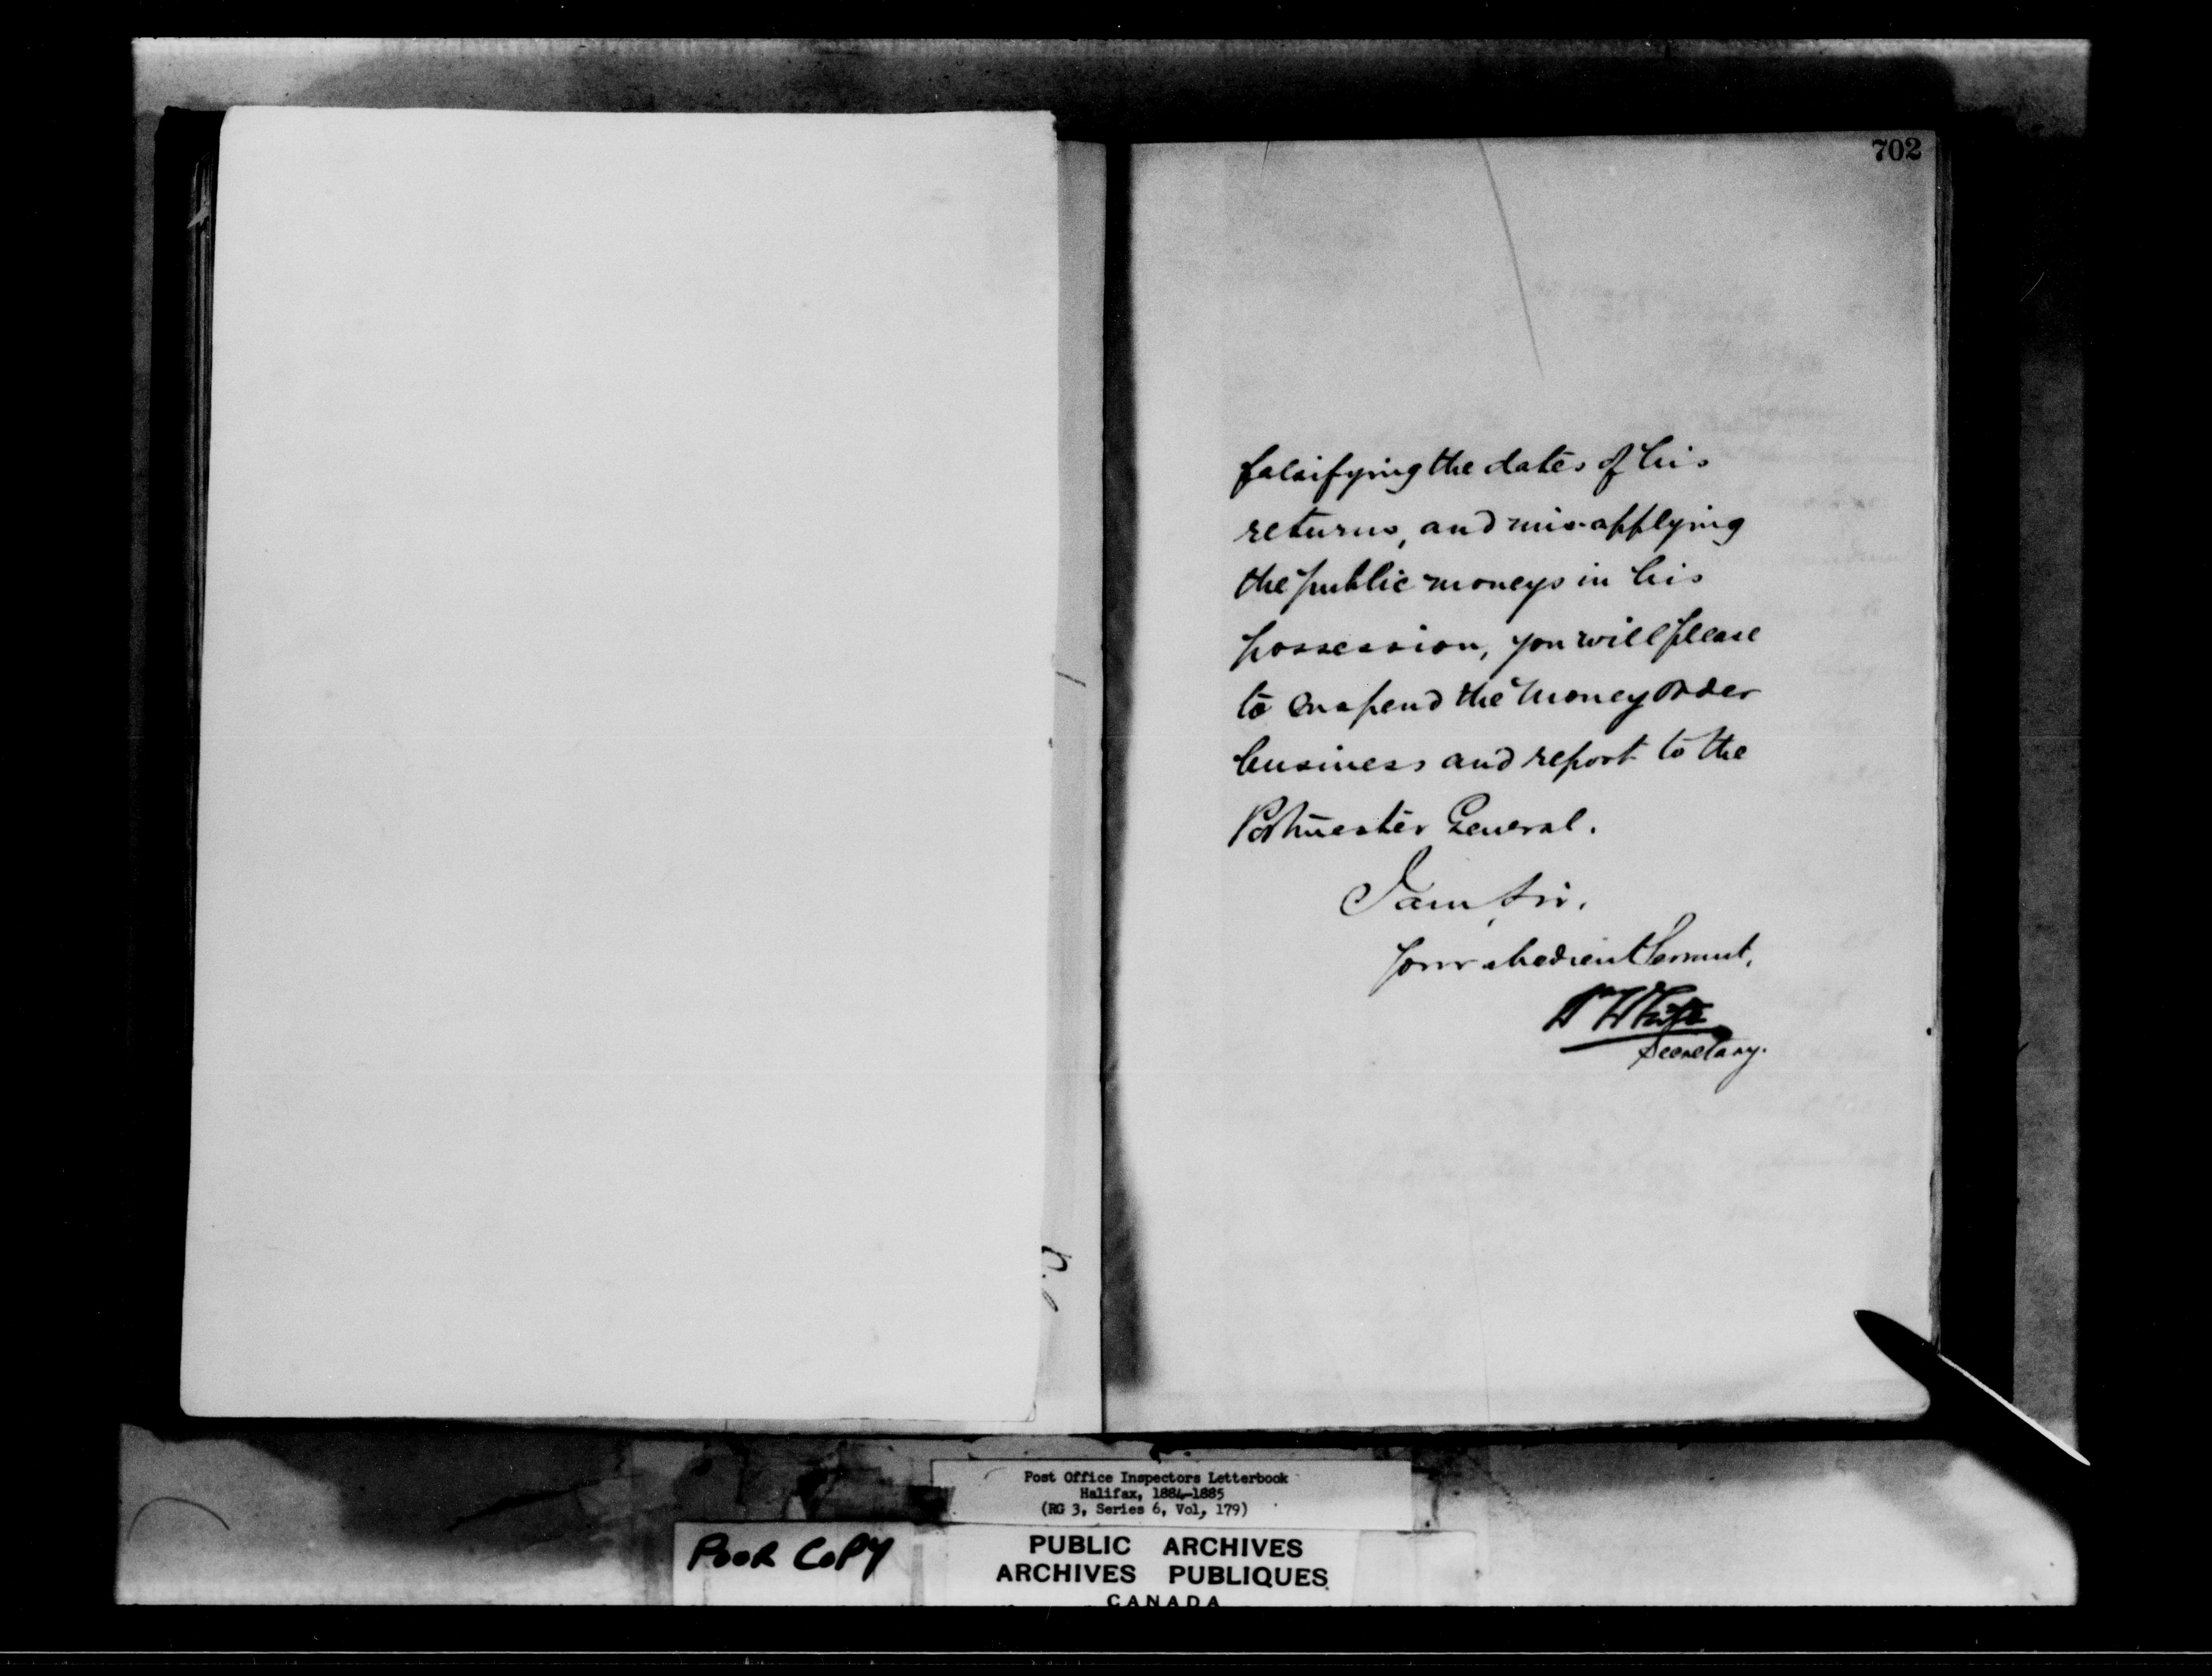 702
falsifying the dates of his
returns, and misapplying
the public moneys in his
possession, you will please
to suspend the Money Order
business and report to the
Postmaster General.
I am, Sir,
Your obedient Servant,
Wm White
Secretary.
Post Office Inspectors Letterbook
Halifax, 1884-1885
(RG 3, Series 6, Vol, 179)
POOR COPY
PUBLIC ARCHIVES
ARCHIVES PUBLIQUES
CANADA